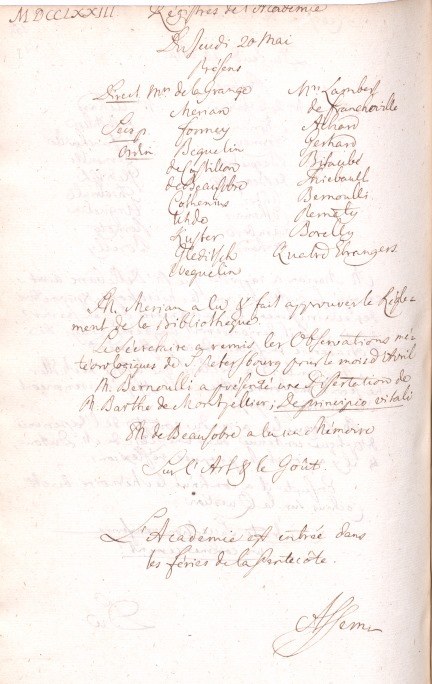 MDCCLXXIII. Registres de l'Academie
Du Jeudi 20 Mai
Présens
Direct Mrs. de la Grange Mrs. Lambert
Merian de Francheville
Secrp Formey Achard
Ordin Beguelin Gerhard
de Castillon Bitaubé
de Beausobre Thiebault
Cothenius Bernoulli
Pernety
Kuster Borelly
Gleditsch Quatre Etrangers
Weguelin
M. Merian a lu & fait approuver le Régle-
ment de la Bibliotheque.
Le Secretaire a remis les Observations mé-
téorologiques de St. Petersbourg pour le mois d'Avril
M. Bernoulli a présenté une Dissertation de
M. Barthe de Montpellier, De principio vitali
M. de Beausobre a lu un Mémoire
Sur l'Art & le Goût.
L'Académie est entrée dans
les féries de la Pentecôte.